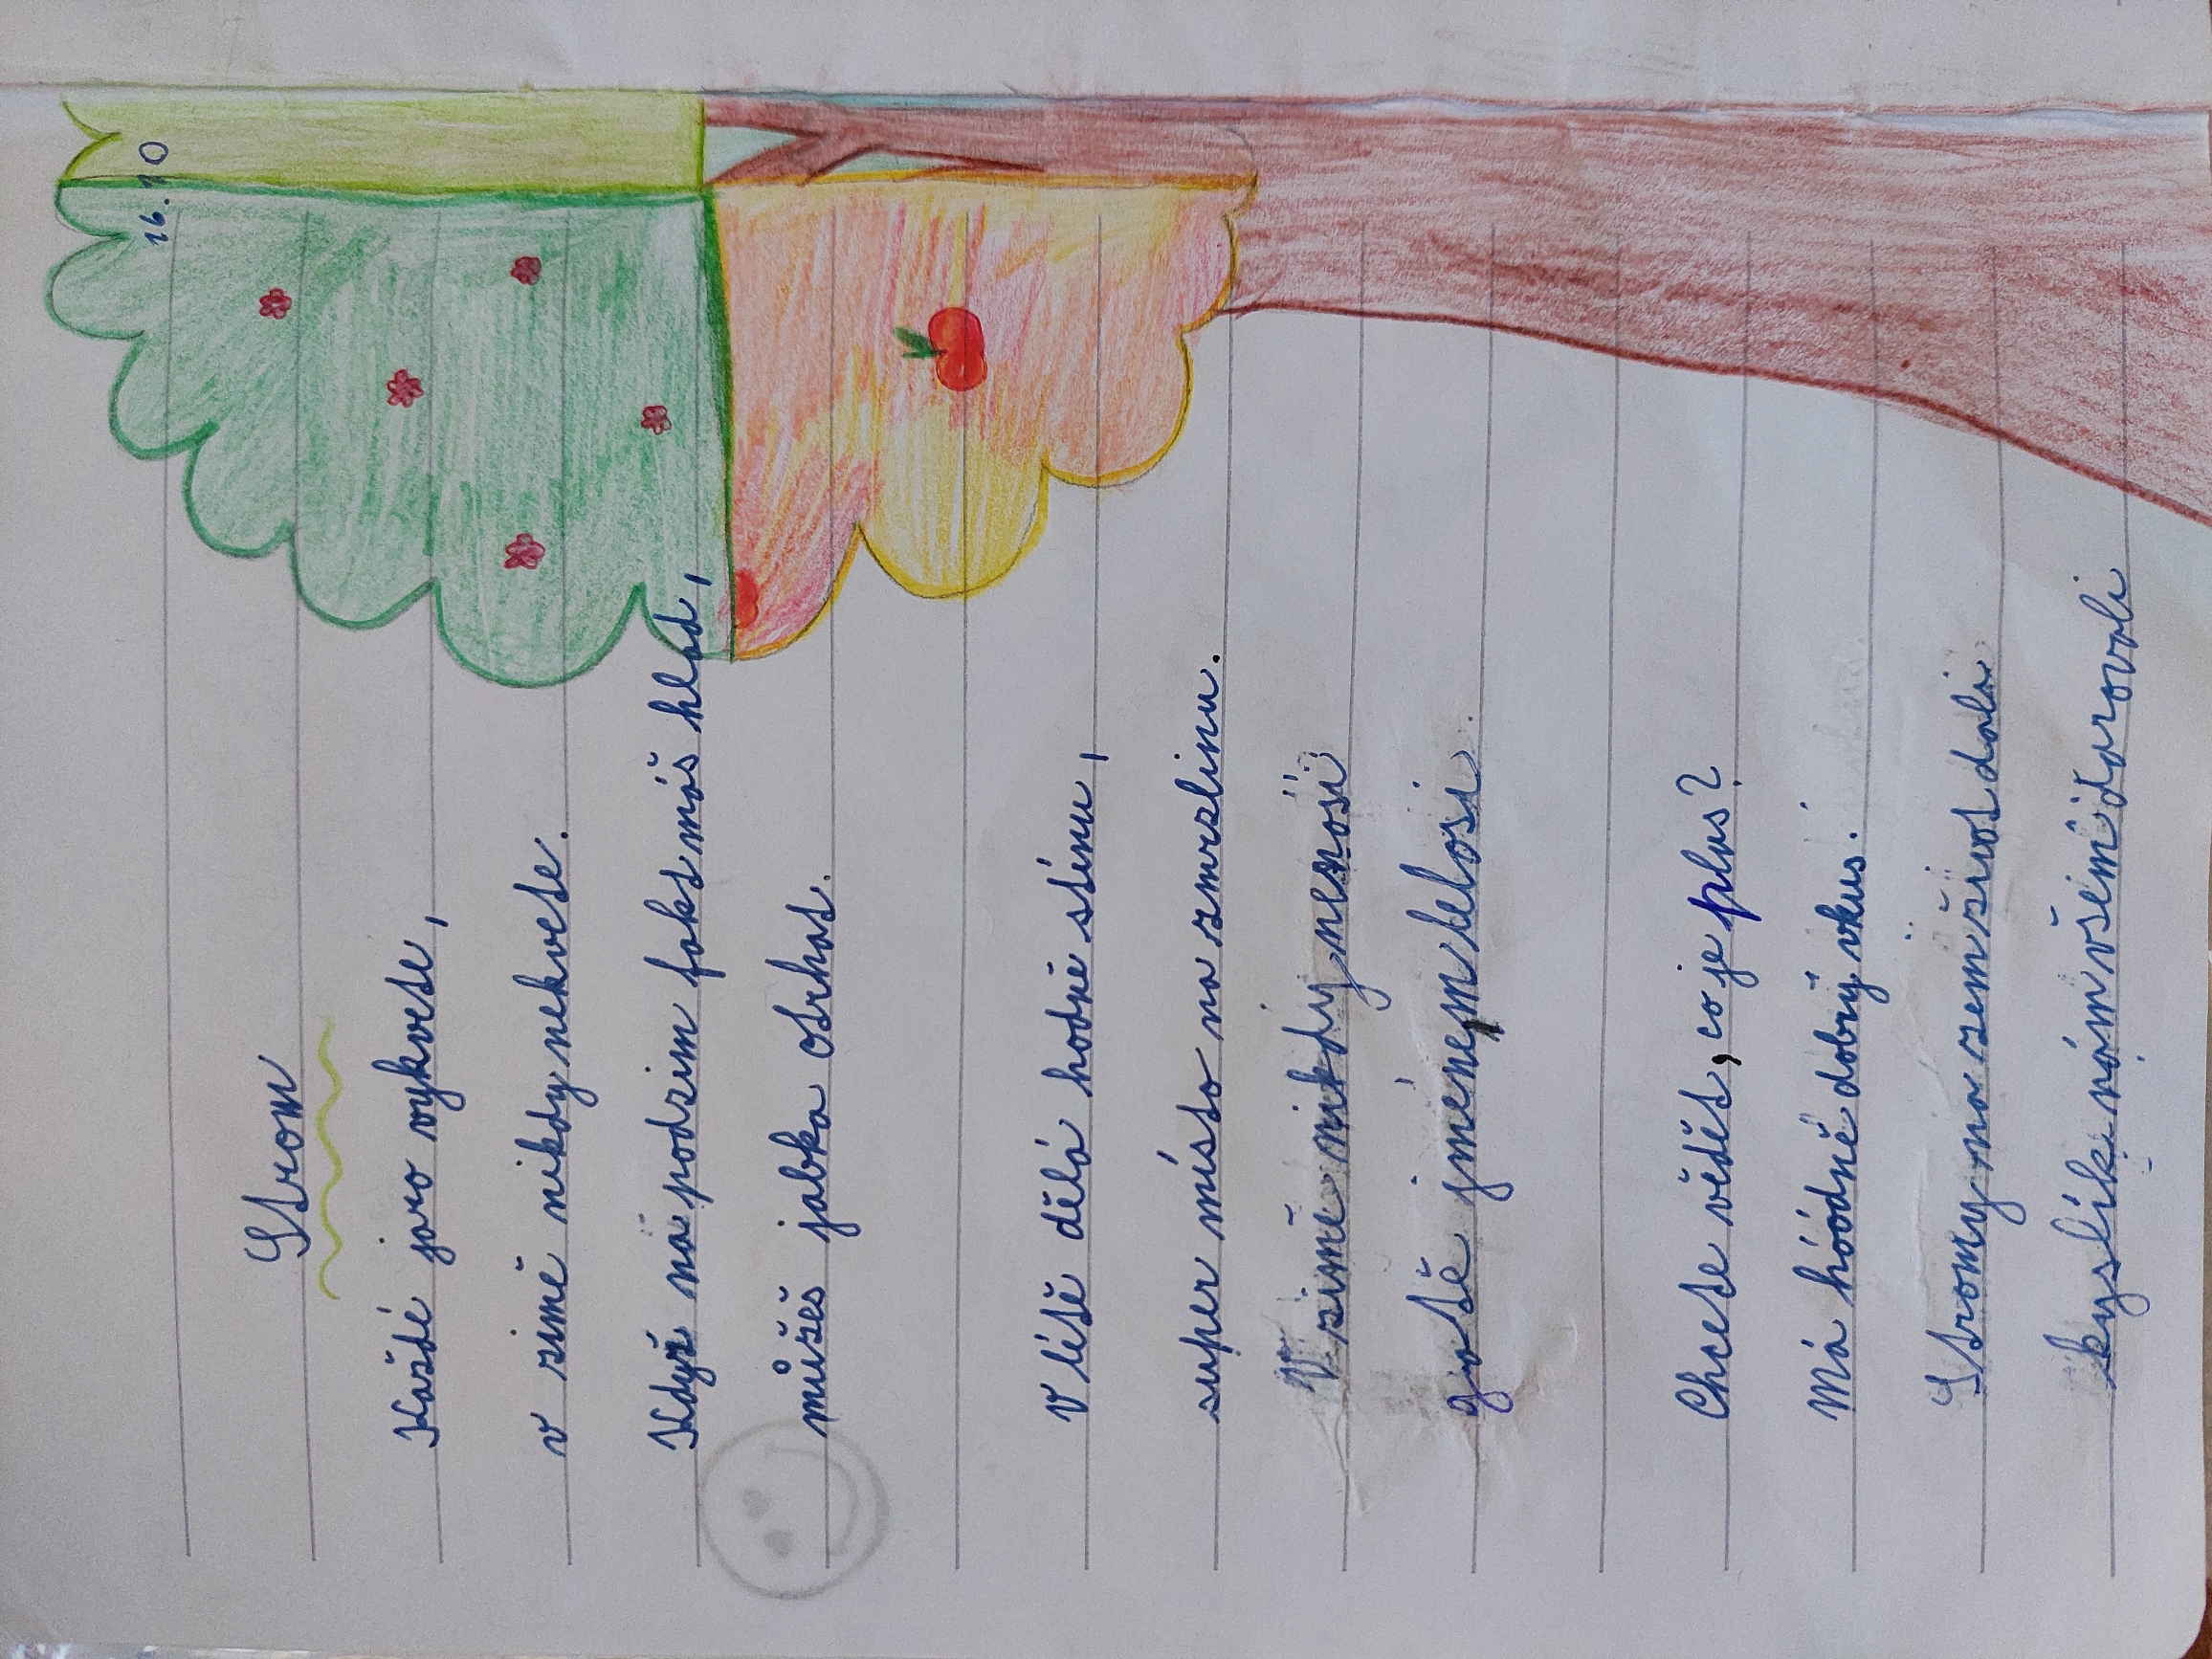 16. 10
Strom
Každé jaro vykvete,
v zimě nikdy nekvete.
Když na podzim fakt máš hlad,
můžeš jabka otrhat.
V létě dělá hodně stínu,
super místo na zmrzlinu.
V zimě nikdy nenosí
jménem
Chcete vědět, co je plus?
Má hóodně dobrý vkus.
Stromy na zem život dali
kyslík nám všem darovali